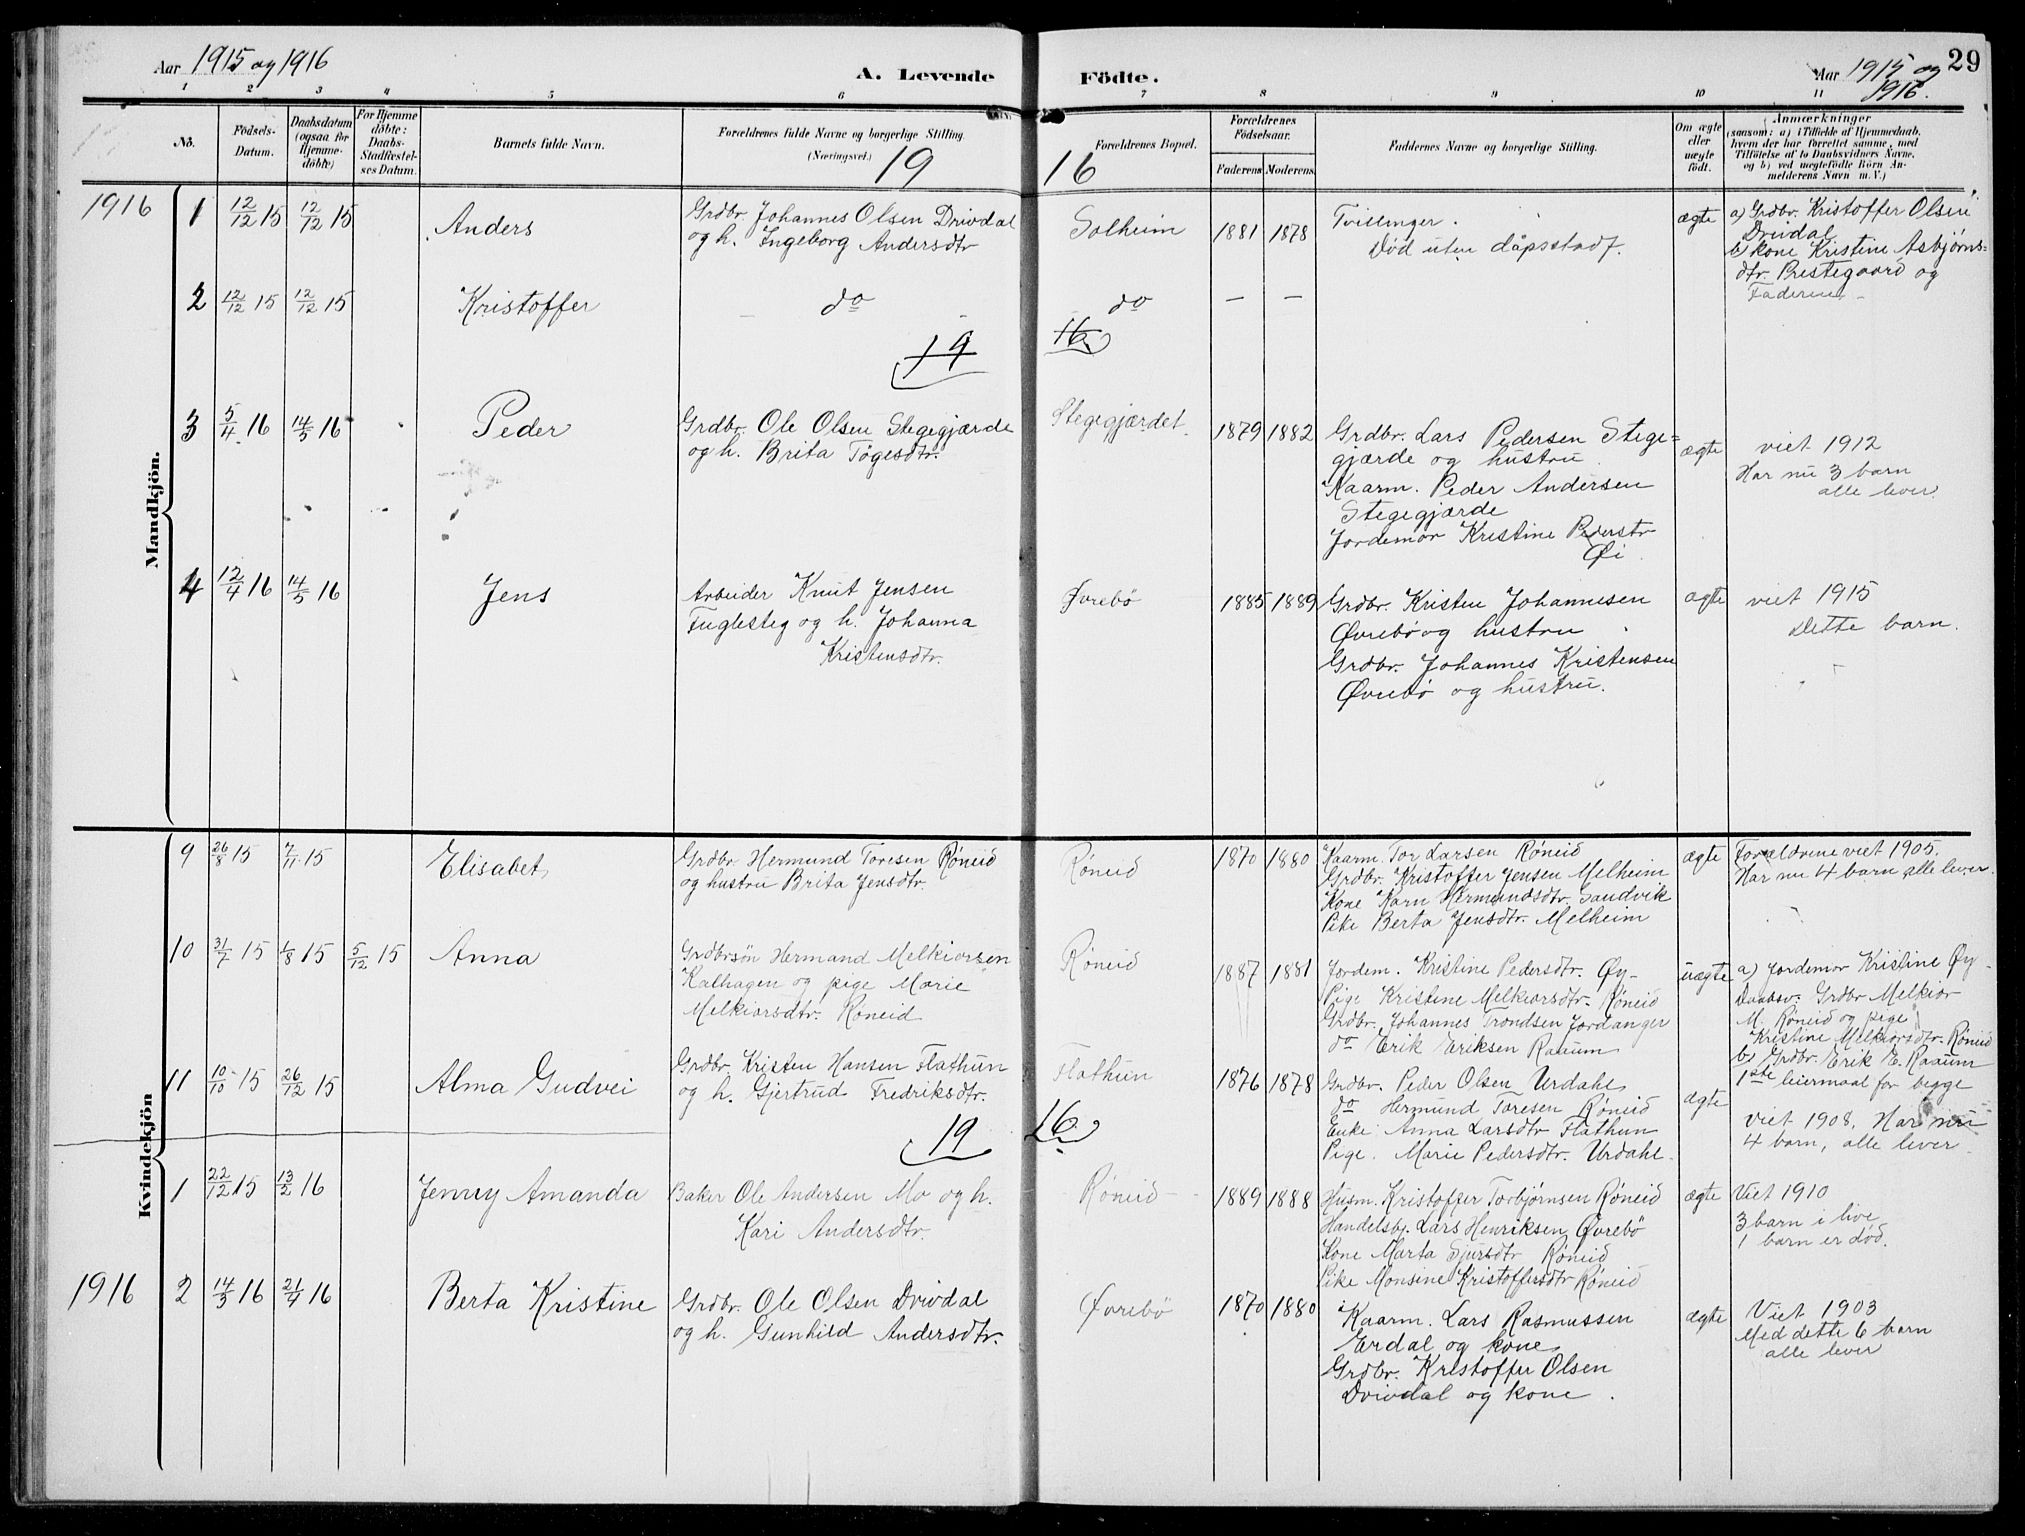 Aar 1915 og 1916
A. Levende Födte.
Aar 1915 og 1916.
29
1 2 3 4 5 6 7 8 9 10 11
No.
Födsels-Datum.
Daabsdatum (ogsaa for Hjemme-döbte)
For Hjemme döbte: Daabs-Stadfæstel-ses Datum.
Barnets fulde Navn.
Forældrenes fulde Navne og borgerlige Stilling. (Næringsvei.)
Forældrenes Bopæl.
Forældrenes Födselsaar.
Faderens Moderens
Faddernes Navne og borgerlige Stilling.
Om ægte eller uægte födt.
Anmærkninger
(saasom: a) i Tilfælde af Hjemmedaab, hvem der har forrettet samme, med Tilföielse af to Daabsvidners Navne, og b) ved uægtefödte Börn An-melderens Navn m. V.)
19 16
Mandkjön.
1916 1 12/12 15 12/12 15 Anders
Grdbr. Johannes Olsen Drivdal
og h. Ingeborg Andersdtr
Solheim 1881 1878
Tvillinger.
Död uten dåpsstadf.
ægte
a) Grdbr. Kristoffer Olsen
Drivdal
b) kone Kristine Asbjørns=
dtr. Prestegaard og
Faderen
2 12/12 15 12/12 15 Kristoffer do do — —
19 16
3 5/4 16 14/5 16 Peder
Grdbr. Ole Olsen Stegegjærde
og h. Brita Tøgesdtr.
Stegegjærdet 1879 1882
Grdbr. Lars Pedersen Stege=
gjærde og hustru
Kaarm. Peder Andersen
Stegegjærde
Jordemor Kristine Pederstr
Øi.
ægte
viet 1912
Har nu 3 barn
alle lever
4 12/4 16 14/5 16 Jens
Arbeider Knut Jensen
Fuglesteg og h. Johanna
Kristensdtr.
Øvrebö 1885 1889
Grdbr. Kristen Johannesen
Øvrebö og hustru
Grdbr. Johannes Kristensen
Øvrebö og hustru.
ægte
viet 1915
Dette barn.
Kvindekjön
9 26/8 15 7/11 15 Elisabet
Grdbr. Hermund Toresen Røneid
og hustru Brita Jensdtr.
Røneid 1870 1880
Kaarm. Tor Larsen Røneid
Grdbr. Kristoffer Jensen Melheim
Kone Karn Hermundsdtr. Sandvik
Pike Berta Jensdtr. Melheim
ægte
Forældrene viet 1905.
Har nu 4 barn alle lever.
10 31/7 15 1/8 15 5/12 15 Anna
Grdbrsön Hermand Melkiorsen
Kalhagen og pige Marie
Melkiorsdtr. Røneid
Røneid 1887 1881
Jordem. Kristine Pedersdtr. Øy
Pige Kristine Melkiorsdtr. Røneid
Grdbr. Johannes Trondsen Jordanger
do Erik Eriksen Raaum
uægte
a) Jordemor Kristine Øy
Daabsv. Grdbr Melkior
M. Røneid og pige
Kristine Melkiorsdtr. Røneid
b) Grdbr. Erik E. Raaum
1ste leiermaal for begge
11 10/10 15 26/12 15 Alma Gudvei
Grdbr. Kristen Hansen Flathun
og h. Gjertrud Fredriksdtr.
Flathun 1876 1878
Grdbr. Peder Olsen Urdahl
do Hermund Toresen Røneid
Enke Anna Larsdtr Flathun
Pige. Marie Pedersdtr. Urdahl.
ægte
viet 1908. Har nu
4 barn, alle lever.
19 16
1 22/12 15 13/2 16 Jenny Amanda
Baker Ole Andersen Mo og h.
Kari Andersdtr.
Røneid 1889 1888
Husm. Kristoffer Torbjørnsen Røneid
Handelsbj. Lars Henriksen Øvrebö
Kone Marta Sjursdtr Røneid
Pike Monsine Kristoffersdtr Røneid
ægte
Viet 1910
3 barn i live
1 barn er död.
1916 2 14/3 16 21/4 16 Berta Kristine
Grdbr. Ole Olsen Drivdal
og h. Gunhild Andersdtr.
Øvrebö 1870 1880
Kaarm. Lars Rasmussen
Erdal og kone
Grdbr. Kristoffer Olsen
Drivdal og kone.
ægte
Viet 1903
Med dette 6 barn
alle lever